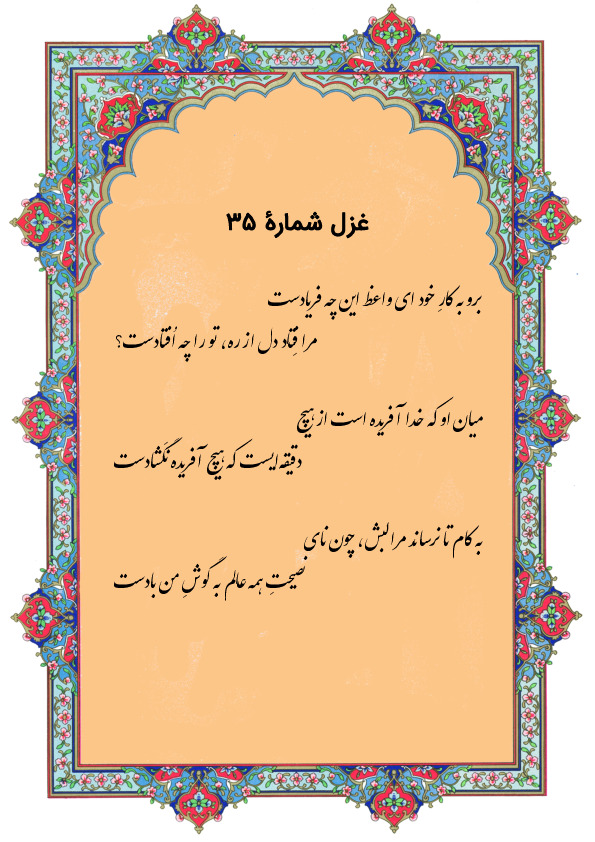 غزل شمارهٔ ۳۵
برو به کارِ خود ای واعظ این چه فریادست
مرا فِتاد دل از ره، تو را چه اُفتادست؟
میان او که خدا آفریده است از هیچ
دقیقه‌ایست که هیچ آفریده نَگشادست
به کام تا نرساند مرا لبش، چون نای
نصیحتِ همه عالم به گوشِ من بادست